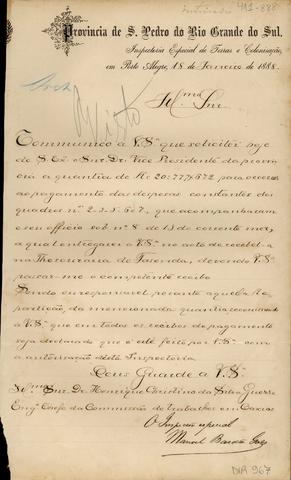 411-888
Provincia de S. Pedro do Rio Grande do Sul.
Inspectoria Especial de Terras e Colonisação,
em Porto Alegre, 18 de Janeiro de 1888.
Visto
Illmo Snr.
Communico a V.Sª que solicitei hoje
de S. Exª o Snr. Dr. Vice Presidente da provin
cia a quantia de Rs 20:777$572 para occorrer
ao pagamento das despezas constantes dos
quadros nos 2. 3. 5. 6 e 7, que acompanharam
o seu officio sob nº 8 de 13 do corrente mez,
a qual entregarei a V.Sª no acto de recebel-a
na Thesouraria de Fazenda, devendo V.Sª
passar-me o competente recibo
Sendo eu responsavel perante aquella Re
partição, da mencionada quantia recommendo
a V.Sª que em todos os recibos de pagamento
seja declarado que é elle feito por V.Sª com
a autorisação desta Inspectoria
Deus Guarde a V.Sª
Illmo Snr. Dr. Henrique Christino da Silva Guerra
Engº Chefe da Commissão de trabalhos em Caxias
O Inspector especial
Manoel Barata Góes
DIR 967